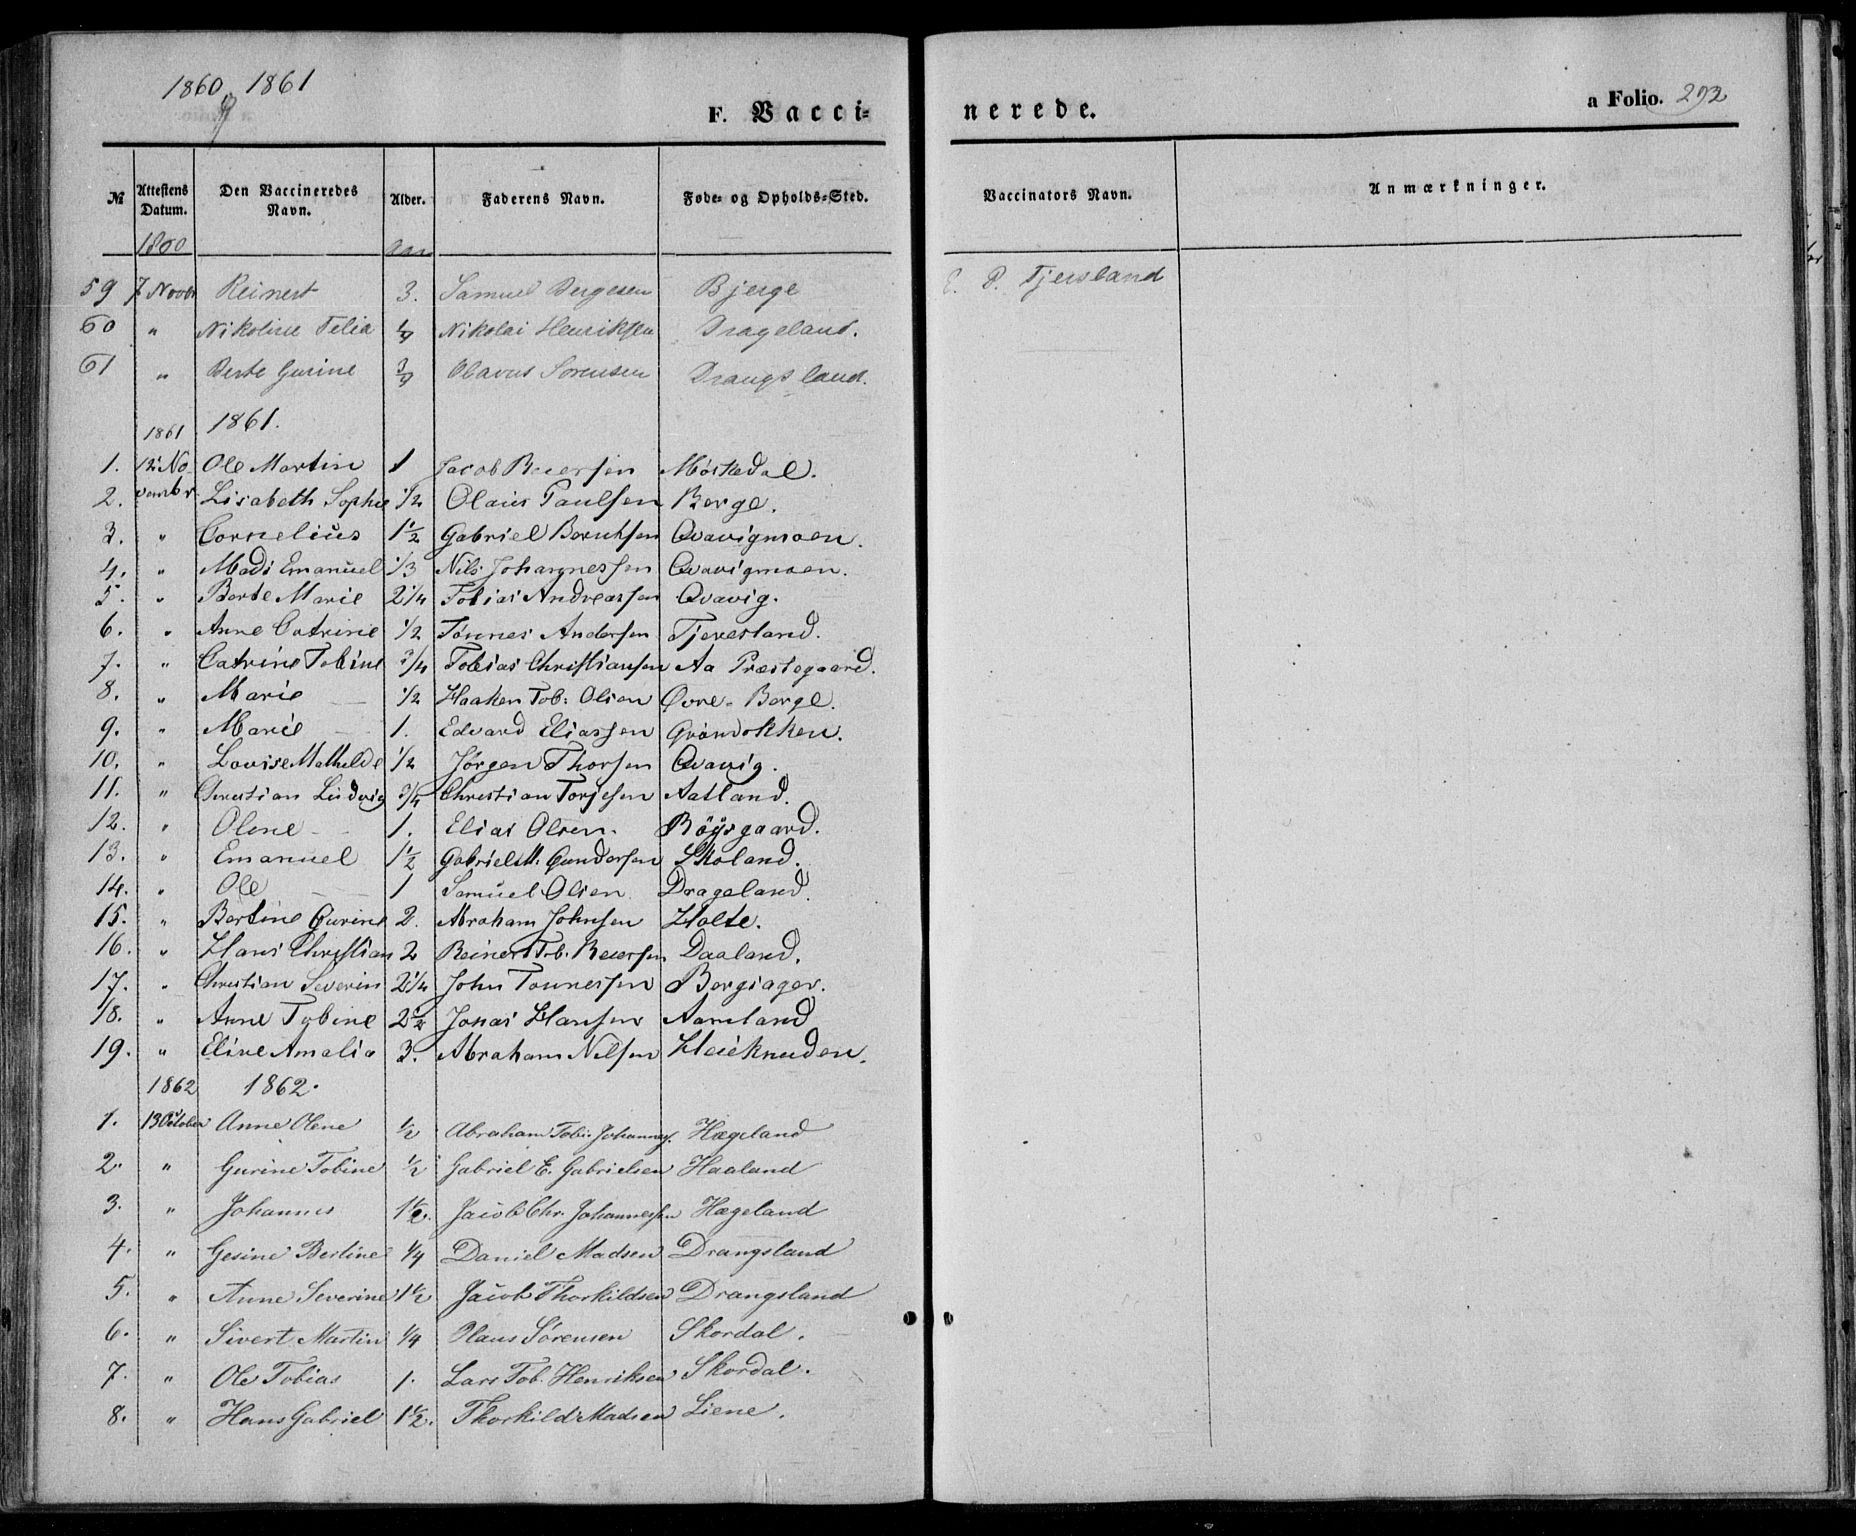 1860, 1861
F. Vacci= nerede. a Folio. 292
№ Attestens Datum. Den Vaccineredes Navn. Alder. Faderens Navn. Føde- og Opholds-Sted. Vaccinators Navn. Anmærkninger.
1860 Aar
59 7 Novbr Reinert 3. Samuel Bergesen Bjerge E. P. Tjersland
60 " Nikoline Telia Nikolai Henriksen Drageland.
61 " Berte Gurine Olavus Sorensen Drangsland.
1861 1861.
1. 12 No Ole Martin 1 Jacob Beiersen Møskedal.
2. vembr. Lisabeth Sophie 1/2 Olaus Paulsen Berge.
3. " Cornelius 1 1/2 Gabriel Berntsen Qvavigmoen.
4. " Mads Emanuel 1/3 Nils Johannessen Qvavigmoen.
5. " Berte Marie 2 1/4 Tobias Andreassen Qvavig.
6. " Anne Catrine 1/2 Tønnes Andersen Tjeresland.
7. " Catrine Tobine 3/4 Tobias Christiansen Aa Præstegaard.
8. " Marie 1/2 Haaken Tob: Olsen Øvre-Berge.
9. " Marie 1. Edvard Eliassen Grøndokken.
10. " Lovise Mathilde 1/2 Jørgen Thorsen Qvavig.
11. " Christian Ludvig 3/4 Christian Torjesen Aatland.
12. " Olene 1. Elias Olsen. Röysgaard.
13. " Emanuel 1 1/2 Gabriel M. Gundersen Skoland.
14. " Ole 1 Samuel Olsen Drageland.
15. " Bertine Gurine 2. Abraham Johnsen Holte.
16. " Hans Christian 2 Reinert Tob. Reiersen Daaland.
17. " Christian Severin 2 1/4 John Tønnessen Bergsager.
18. " Anne Tobine 2 1/2 Jonas Hansen Aamland
19. " Eline Amalia 3. Abraham Nilsen Heieknuden.
1862 1862.
1. 13 October Anne Olene 1/2 Abraham Tob. Johannes. Hægeland
2. " Gurine Tobine 1/2 Gabriel E. Gabrielsen Haaland
3. " Johannes 1 1/2. Jacob Chr. Johannessen Hægeland
4. " Gesine Bertine 1/4 Daniel Madsen Drangsland
5. " Anne Severine 1 1/2 Jacob Thorkildsen Drangsland
6. " Sivert Martin 1/4 Olaus Sørensen Skordal.
7. " Ole Tobias 1. Lars Tob. Henriksen Skordal.
8. " Hans Gabriel 1 1/2. Thorkild Madsen Liene.